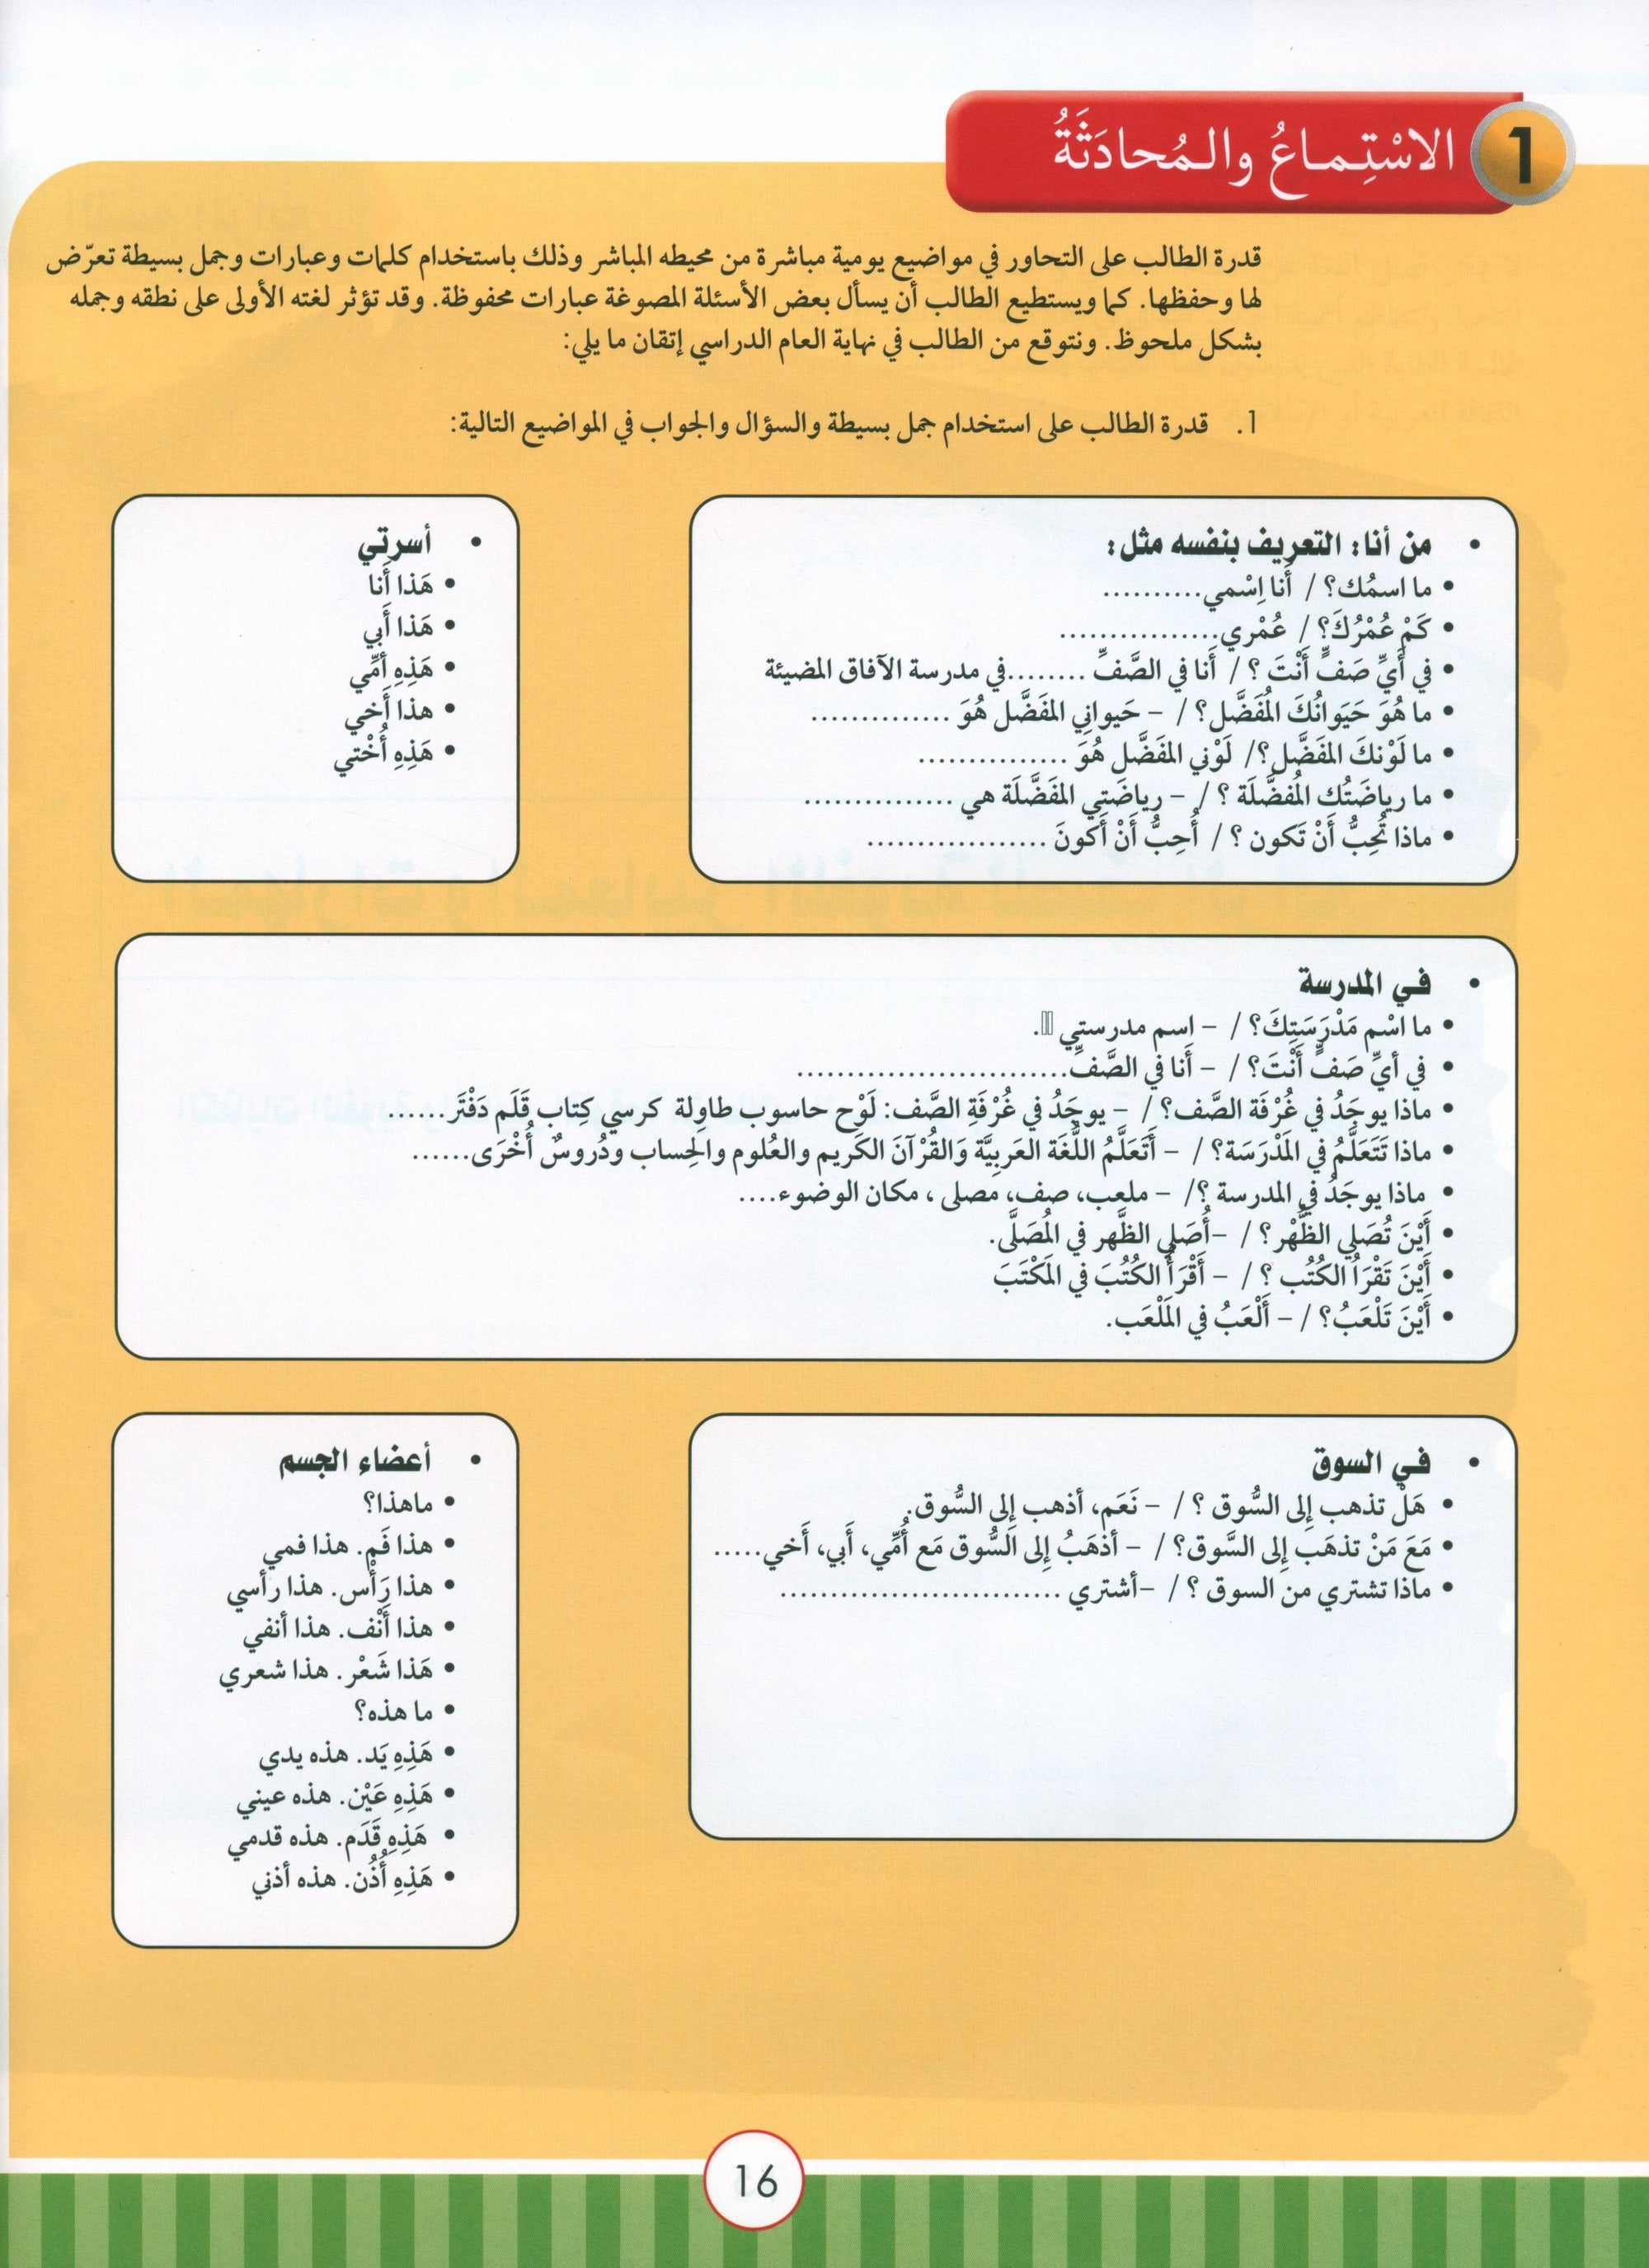 1 الاسْتِماعُ والمُحادَثَةُ
قدرة الطالب على التحاور في مواضيع يومية مباشرة من محيطه المباشر وذلك باستخدام كلمات وعبارات وجمل بسيطة تعرّض
لها وحفظها. كما ويستطيع الطالب أن يسأل بعض الأسئلة المصوغة عبارات محفوظة. وقد تؤثر لغته الأولى على نطقه وجمله
بشكل ملحوظ. ونتوقع من الطالب في نهاية العام الدراسي إتقان ما يلي:
1. قدرة الطالب على استخدام جمل بسيطة والسؤال والجواب في المواضيع التالية:
• من أنا: التعريف بنفسه مثل:
• ما اسمُك؟ / أَنا اِسْمي..........
• كَمْ عُمْرُكَ؟ / عُمْري................
• في أَيِّ صَفٍّ أَنْتَ ؟ / أَنا في الصَّفِّ ........في مدرسة الآفاق المضيئة
• ما هُوَ حَيَوانُكَ المُفَضَّل؟ / – حَيواني المفَضَّل هُوَ ..............
• ما لَوْنكَ المفَضَّل ؟/ لَوْني المفَضَّل هُوَ ...............
• ما رياضَتُك المُفضَّلَة ؟ / – رياضَتِي المفَضَّلَة هي ...............
• ماذا تُحِبُّ أَنْ تَكون ؟ / أُحِبُّ أَنْ أَكونَ ..................
• أسرتي
• هَذا أَنا
• هَذا أَبي
• هَذِهِ أمِّي
• هذا أَخي
• هَذِهِ أُخْتي
• في المدرسة
• ما اسْم مَدْرَسَتِكَ؟ / – اسم مدرستي .
• في أيِّ صَفٍّ أَنْتَ؟ / – أَنا في الصَّفِّ..........................
• ماذا يوجَدُ في غُرْفَة الصَّف؟ / – يوجَدُ في غُرْفَةِ الصَّف: لَوْح حاسوب طاوِلة كرسي كِتاب قَلَم دَفْتَر......
• ماذا تَتَعَلَّمُ في المَدْرَسَة؟ / – أَتَعَلَّمُ اللُّغَة العَربِيَّة وَالقُرْآنَ الكَريم والعُلوم والحِساب ودُروسٌ أُخْرَى......
• ماذا يوجَدُ في المدرسة ؟/ – ملعب، صف، مصلى ، مكان الوضوء....
• أَيْنَ تُصَلي الظُّهْر؟ / –أُصَلي الظُّهر في المُصَلَّى.
• أَيْنَ تَقْرَأُ الكُتُب ؟ / – أَقْرَأُ الكُتُبَ في المَكْتَبَ
• أَيْنَ تَلْعَبُ؟ / – أَلْعَبُ في المَلْعَب.
• في السوق
• هَلْ تذهب إلى السُّوق ؟ / – نَعَم، أذهب إلى السُّوق.
• مَعَ مَنْ تذهَب إِلى السَّوق؟ / – أذهَبُ إِلى السُّوق مَع أُمِّي، أَبي، أَخي.....
• ماذا تشتري من السوق ؟ / –أشتري ...........................
• أعضاء الجسم
• ماهذا؟
• هذا فَم. هذا فمي
• هذا رَأْس. هذا رأسي
• هذا أَنْف. هذا أنفي
• هَذا شَعْر. هذا شعري
• ما هذه؟
• هَذِهِ يَد. هذه يدي
• هَذِهِ عَيْن. هذه عيني
• هَذِهِ قَدَم. هذه قدمي
• هَذِهِ أُذُن. هذه أذني
16